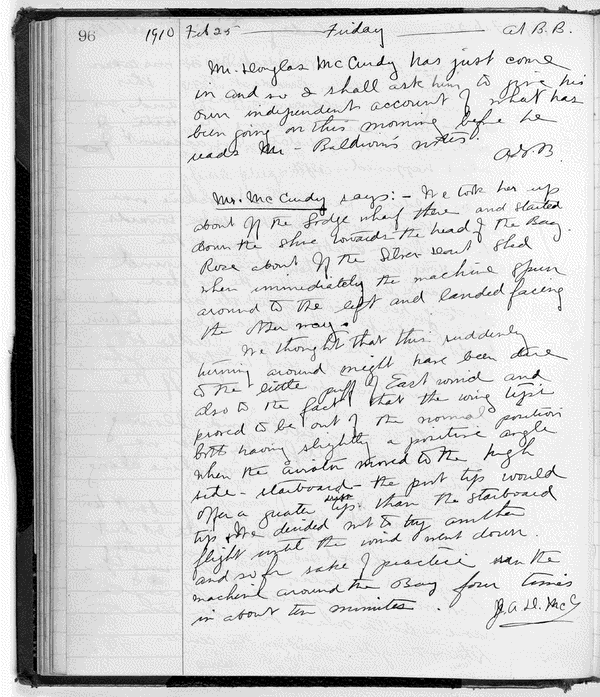 96 1910 Feb 25 — Friday — At B.B.
Mr. Douglas McCurdy has just come
in and so I shall ask him to give his
own independent account of what has
been going on this morning before he
reads Mr. Baldwin's notes.
A.G.B.
Mr. McCurdy says:— We took her up
about off the Lodge wharf there and started
down the shore towards the head of the Bay.
Rose about off the Silver Dart Shed
when immediately the machine spun
around to the left and landed facing
the other way.
We thought that this suddenly
turning around might have been due
to the little puff of East wind and
also to the fact that the wing tips
proved to be out of the normal position
both having slightly a positive angle
when the aviator moved to the high
side - starboard - the port tips would
offer a greater
tips than the starboard
tip. We decided not to try another
flight until the wind went down.
and so for sake of practice ran the
machine around the Bay four times
in about ten minutes.
J.A.D. McC